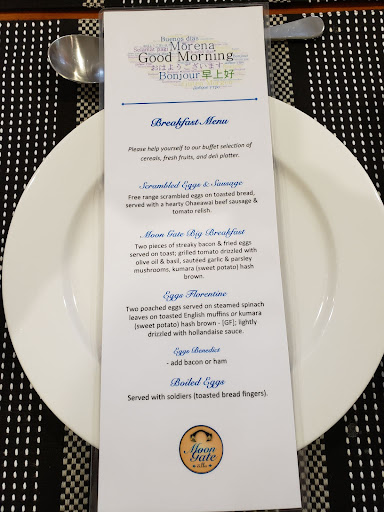 Buenos días
Morena
Good Morning
おはようございます
Bonjour 早上好
Breakfast Menu
Please help yourself to our buffet selection of
cereals, fresh fruits, and deli platter.
Scrambled Eggs & Sausage
Free range scrambled eggs on toasted bread,
served with a hearty Ohaeawai beef sausage &
tomato relish.
Moon Gate Big Breakfast
Two pieces of streaky bacon & fried eggs
served on toast; grilled tomato drizzled with
olive oil & basil, sautéed garlic & parsley
mushrooms, kumara (sweet potato) hash
brown.
Eggs Florentine
Two poached eggs served on steamed spinach
leaves on toasted English muffins or kumara
(sweet potato) hash brown - [GF]; lightly
drizzled with hollandaise sauce.
Eggs Benedict
- add bacon or ham
Boiled Eggs
Served with soldiers (toasted bread fingers).
Moon
Gate
Villa